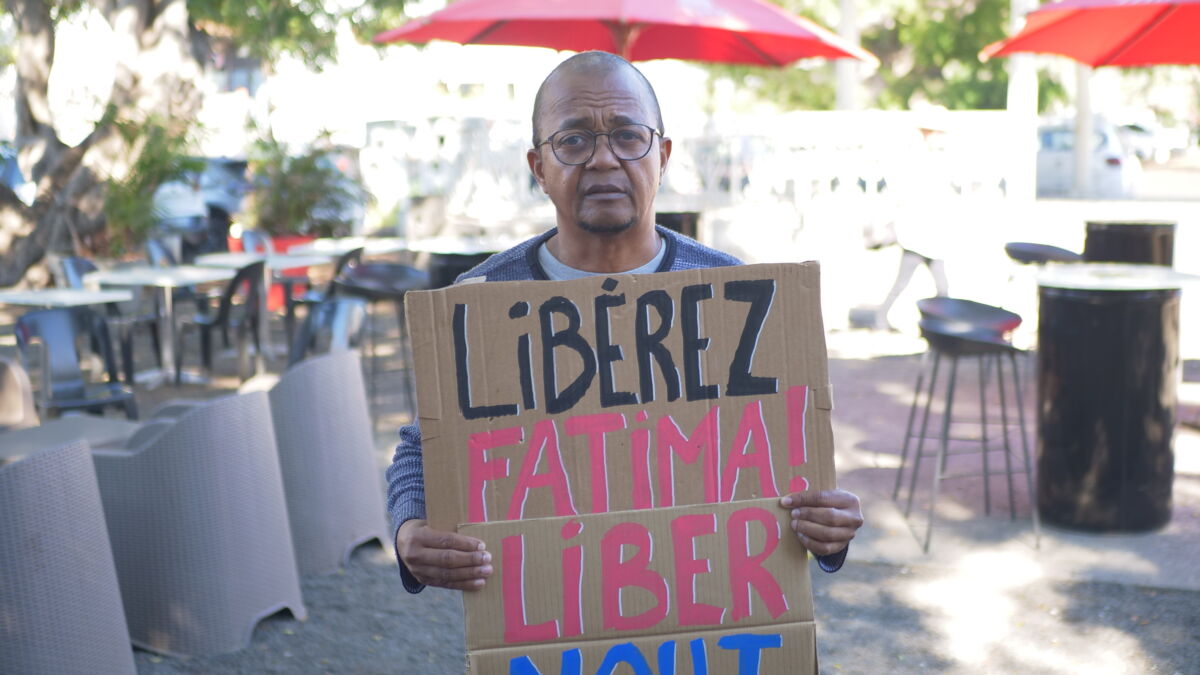 LiBÉREZ
FATiMA!
LiBER
NOUT